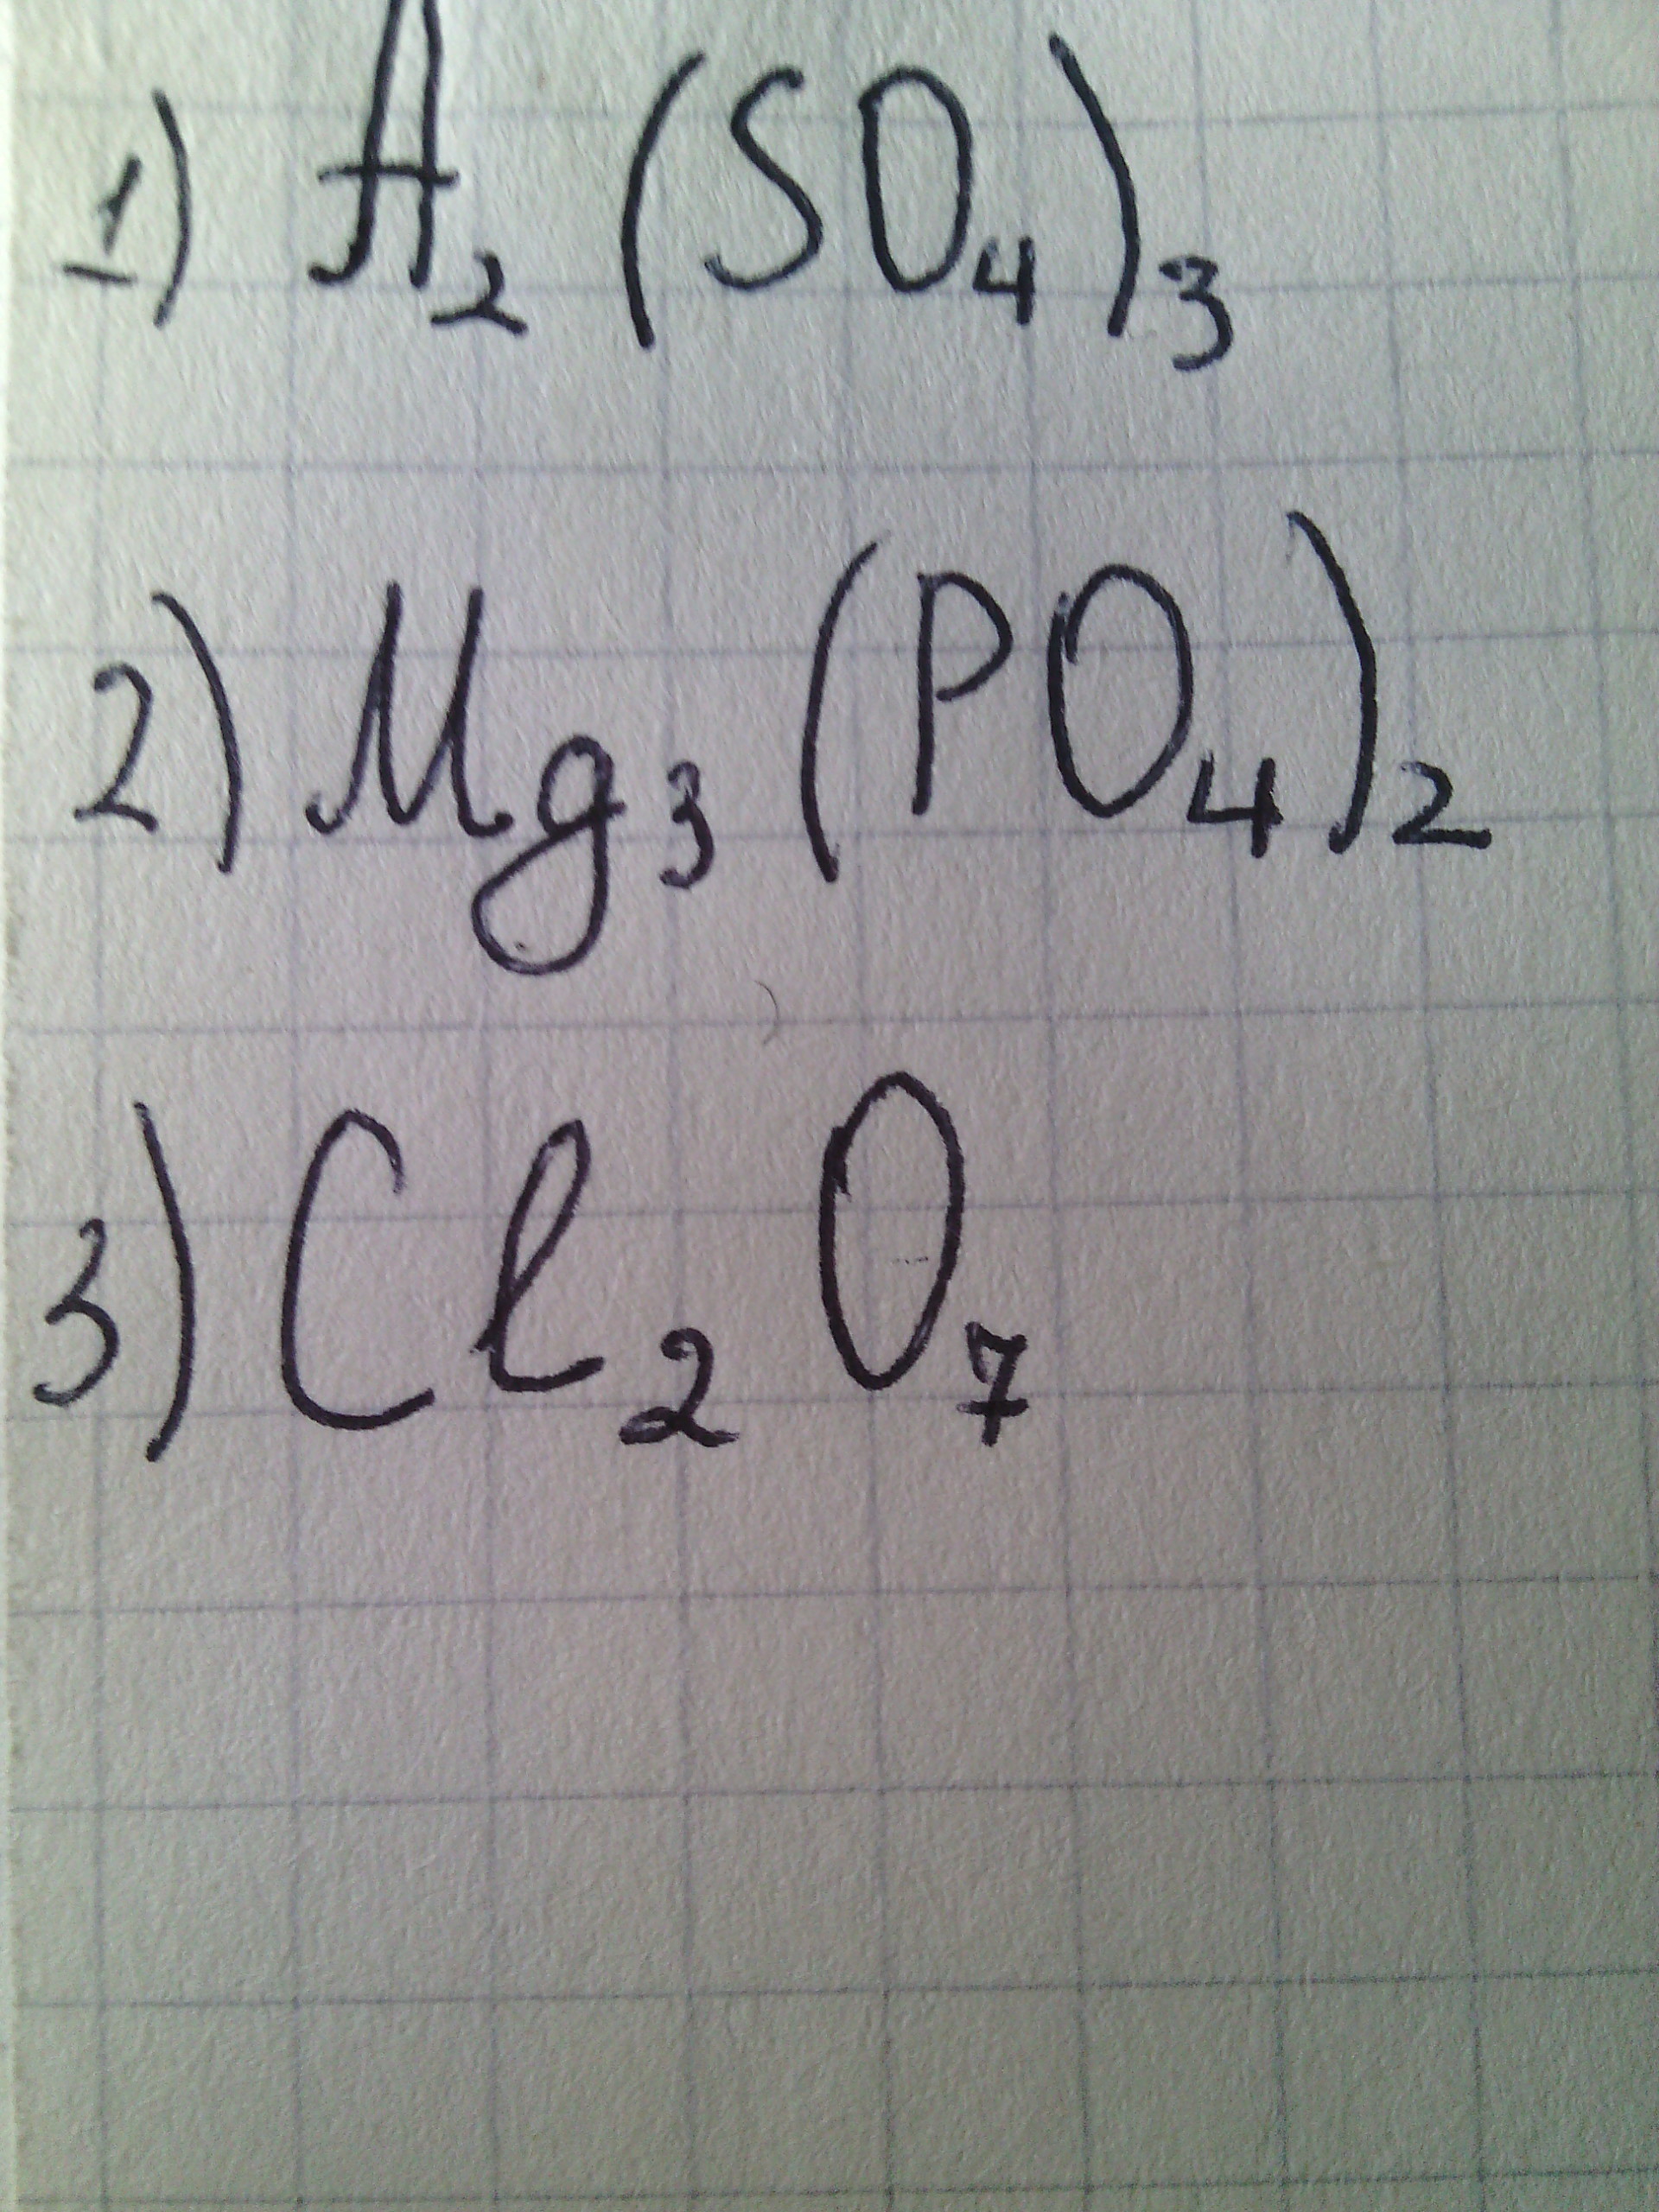 1) A₂(SO₄)₃
2) Mg₃(PO₄)₂
3) Cl₂O₇